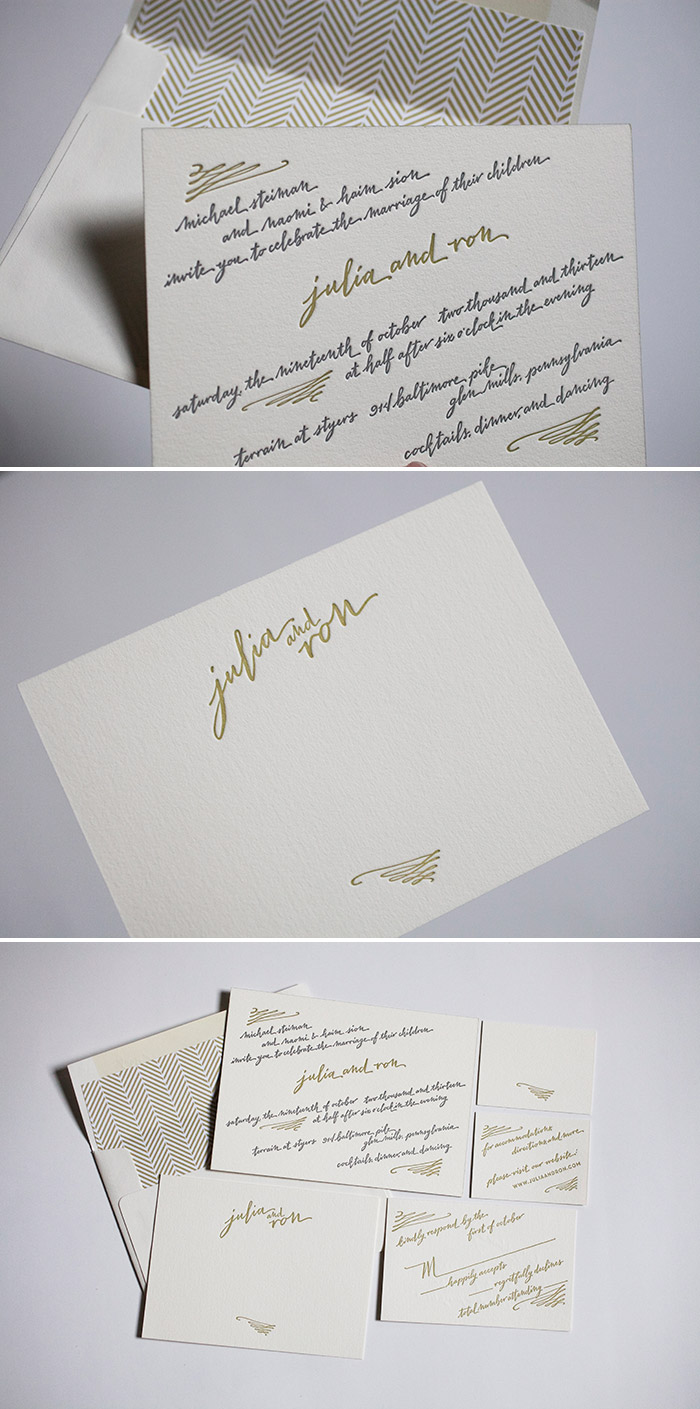 michael steiman
and naomi & haim sion
invite you to celebrate the marriage of their children
julia and ron
saturday, the nineteenth of october two thousand and thirteen
at half after six o'clock in the evening
terrain at styers 914 baltimore pike
glen mills, pennsylvania
cocktails, dinner, and dancing
julia
and
ron
michael steiman
and naomi & haim sion
invite you to celebrate the marriage of their children
julia and ron
saturday, the nineteenth of october two thousand and thirteen
at half after six o'clock in the evening
terrain at styers 914 baltimore pike
glen mills, pennsylvania
cocktails, dinner, and dancing
for accomodations
directions and more
please visit our website:
WWW.JULIAANDRON.COM
julia
and
ron
kindly respond by the
first of october
M
happily accepts
regretfully declines
total number attending